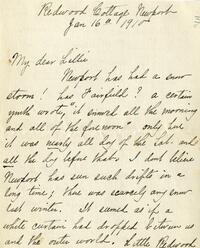 Redwood Cottage Newport
Jan 16th 1918
My dear Lillie
Newport has had a snow
storm! has Fairfield? a certain
youth wrote, "it snowed all the morning
and all of the forenoon" only here
it was nearly all day of the Sat. and
all the day before that. I don't believe
Newport has seen such drifts in a
long time; there was scarcely any snow
last winter. It seemed as if a
white curtain had dropped between us
and the outer world. Little Redwood